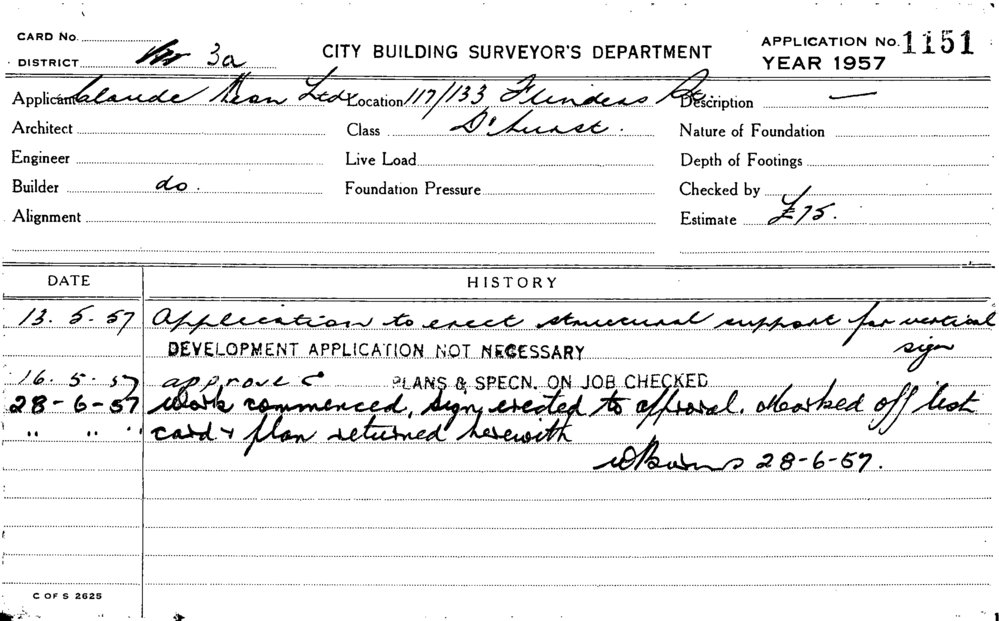 CARD No.
CITY BUILDING SURVEYOR'S DEPARTMENT
APPLICATION No. 1151
DISTRICT 3a
YEAR 1957
Applicant Claude Neon Ltd Location 117/133 Flinders St Description —
Architect Class D'hurst. Nature of Foundation
Engineer Live Load Depth of Footings
Builder do. Foundation Pressure Checked by
Alignment Estimate £75.
DATE HISTORY
13. 5. 57 Application to erect structural support for vertical
sign
DEVELOPMENT APPLICATION NOT NECESSARY
16. 5. 57 approved PLANS & SPECN. ON JOB CHECKED
28-6-57 Work commenced, sign erected to approval. Marked off list
" " " card & plan returned herewith
28-6-57.
C OF S 2625